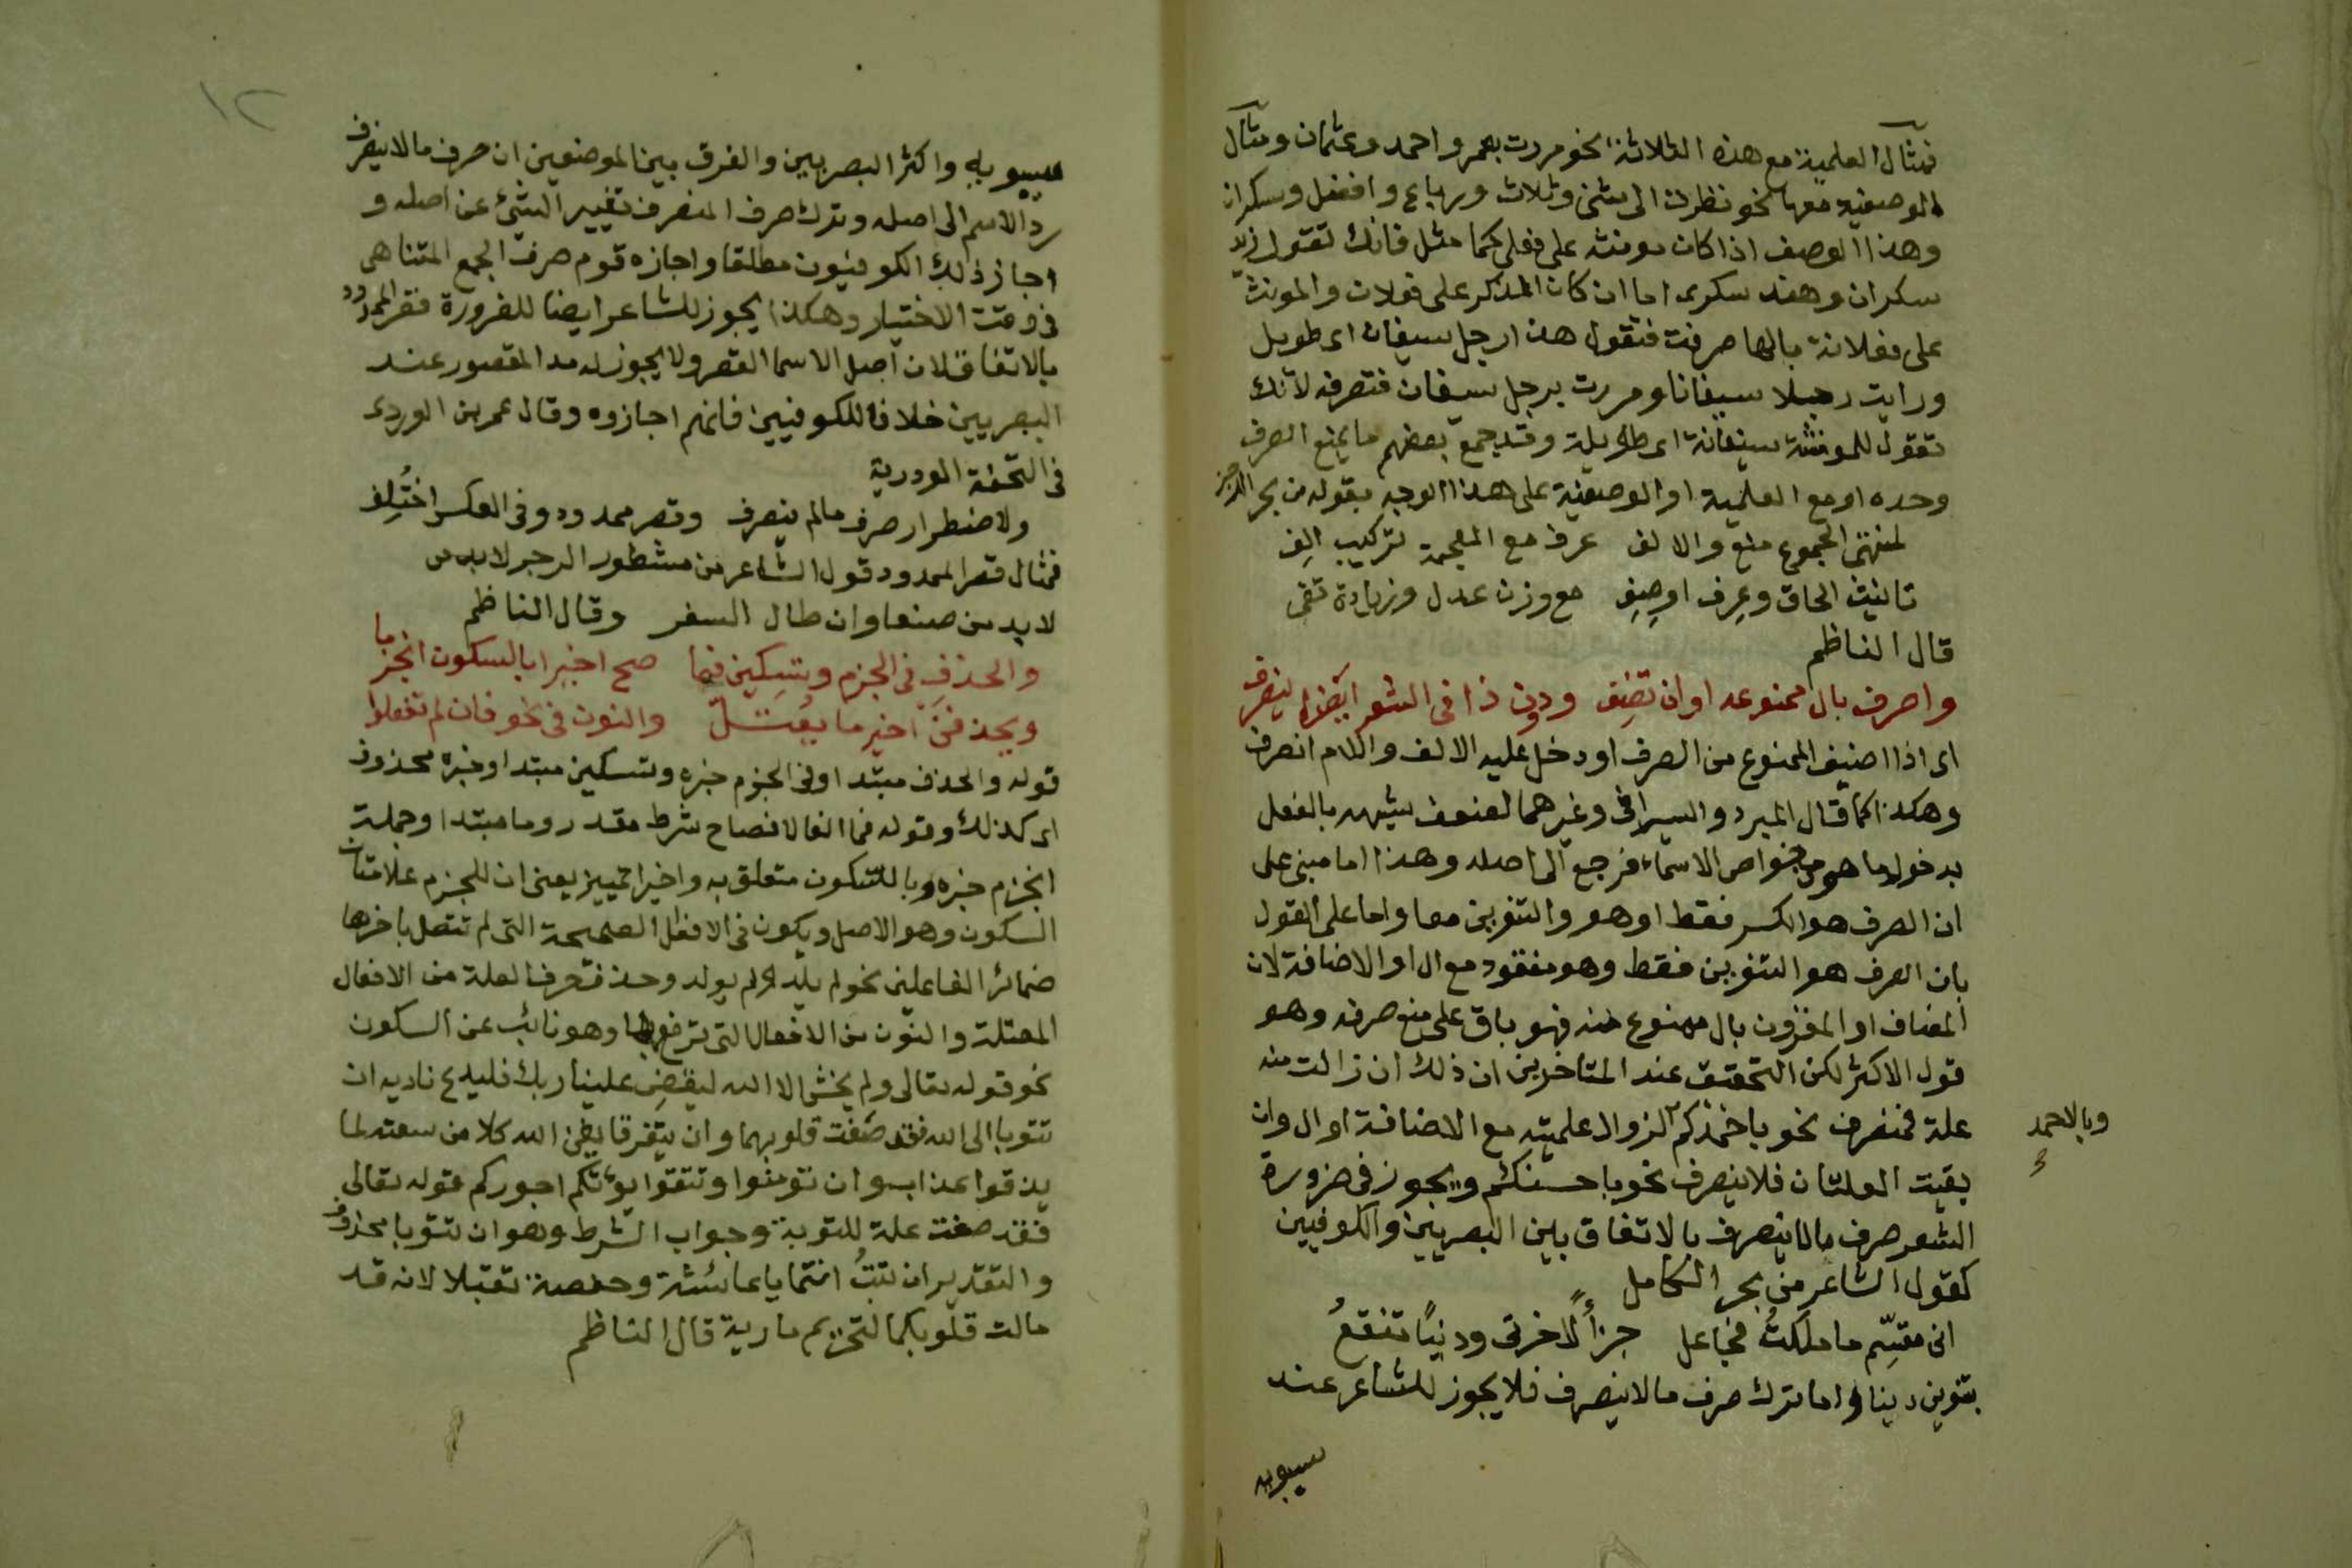 فمثال العلمية مع هذه الثلاثة نحو مررت بعمر واحمد وعثمان ومثال
الوصفية معها نحو نظرت الى مثنى وثلاث ورباع وافضل وسكران
وهذا الوصف اذا كان مونثه على فعلى كما مثل فانك تقول زيد
سكران وهند سكرى اما ان كان المذكر على فعلان والمونث
على فعلانة بالها صرفت فتقول هذا رجل سيفان اى طويل
ورايت رجلا سيفانا ومررت برجل سيفان فتصرفه لانك
تقول للمونثة سيفانة اى طويلة وقد جمع بعضهم ما يمنع الصرف
وحده او مع العلمية او الوصفية على هذا الوجه بقوله من بحر الرجز
لمنتهى الجموع منع والالف عرف مع العجمة تركيب الِف
تانيث الحاق وعِرف اوصِفِ مع وزن عدل وزيادة تفى
قال الناظم
واصرف بال ممنوعه او ان تضِف ودون ذا فى الشعر ايضا ينصرف
اى اذا اضيف الممنوع من الصرف او دخل عليه الالف واللام انصرف
وهكذا كما قال المبرد والسيرافى وغيرهما لضعف شبهه بالفعل
بدخول ما هو من خواص الاسماء فرجع الى اصله وهذا اما مبنى على
ان الصرف هو الكسر فقط او هو والتنوين معا واما على القول
بان الصرف هو التنوين فقط وهو مفقود مع ال او الاضافة لان
المضاف او المقرون بال ممنوع منه فهو باق على منع صرفه وهو
قول الاكثر لكن التحقيق عند المتاخرين ان ذلك ان زالت منه
علة فمنصرف نحو باحمدكم لزوال علميته مع الاضافة او ال وان
وبالاحمد
بقيت العلتان فلا ينصرف نحو باحسنكم ويجوز فى ضرورة
الشعر صرف مالا ينصرف بالاتفاق بين البصريين والكوفيين
كقول الشاعر من بحر الكامل
انى مقسِّم ما ملكتُ فجاعل جزأً لاخرتى ودنيًا تنفعُ
بتنوين دينا واما ترك صرف مالا ينصرف فلا يجوز للشاعر عند
سيبويه
١٢
سيبويه واكثر البصريين والفرق بين الموضعين ان صرف مالا ينصرف
رد الاسم الى اصله وترك صرف المنصرف تغيير الشئ عن اصله و
اجاز ذلك الكوفيون مطلقا واجازه قوم صرف الجمع المتناهى
فى وقت الاختيار وهكذا يجوز للشاعر ايضا للضرورة قصر الممدود
بالاتفاق لان اصل الاسما القصر ولا يجوز له مد المقصور عند
البصريين خلافا للكوفيين فانهم اجازوه وقال عمر بن الوردى
فى التحفة الوردية
ولاضطرار صرف مالم ينصرف وقصر ممدود وفى العكس اختُلِف
فمثال قصر الممدود قول الشاعر من مشطور الرجز لابد من
لا بد من صنعا وان طال السفر وقال الناظم
والحذفِ فى الجزم وتسكين فما صح اخيرا بالسكون انجزما
ويحذفن اخير ما يعتلّ والنون فى نحو فان لم تفعلوا
قوله والحذف مبتدا وفى الجزم خبره وتسكين مبتدا وخبره محذوف
اى كذلك وقوله فما الفا لافصاح شرط مقدر وما مبتدا وجملة
انجزم خبره وبالسكون متعلق به واخيرا تمييز يعنى ان للجزم علامتان
السكون وهو الاصل ويكون فى الافعال الصحيحة التى لم تتصل باخرها
ضمائر الفاعلين نحو لم يلد ولم يولد وحذف حرف العلة من الافعال
المعتلة والنون من الافعال التى ترفع بها وهو نائب عن السكون
نحو قوله تعالى ولم يخش الا الله ليقضِ علينا ربك فليدع ناديه ان
تتوبا الى الله فقد صغت قلوبهما وان يتفرقا يغن الله كلا من سعته لما
يذقوا عذاب وان تومنوا وتتقوا يوتكم اجوركم قوله تعالى
فقد صغت علة للتوبة وجواب الشرط وهو ان تتوبا محذوف
والتقدير ان تتبُ انتما يا عائشة وحفصة تقبلا لانه قد
مالت قلوبكما لتحريم مارية قال الناظم